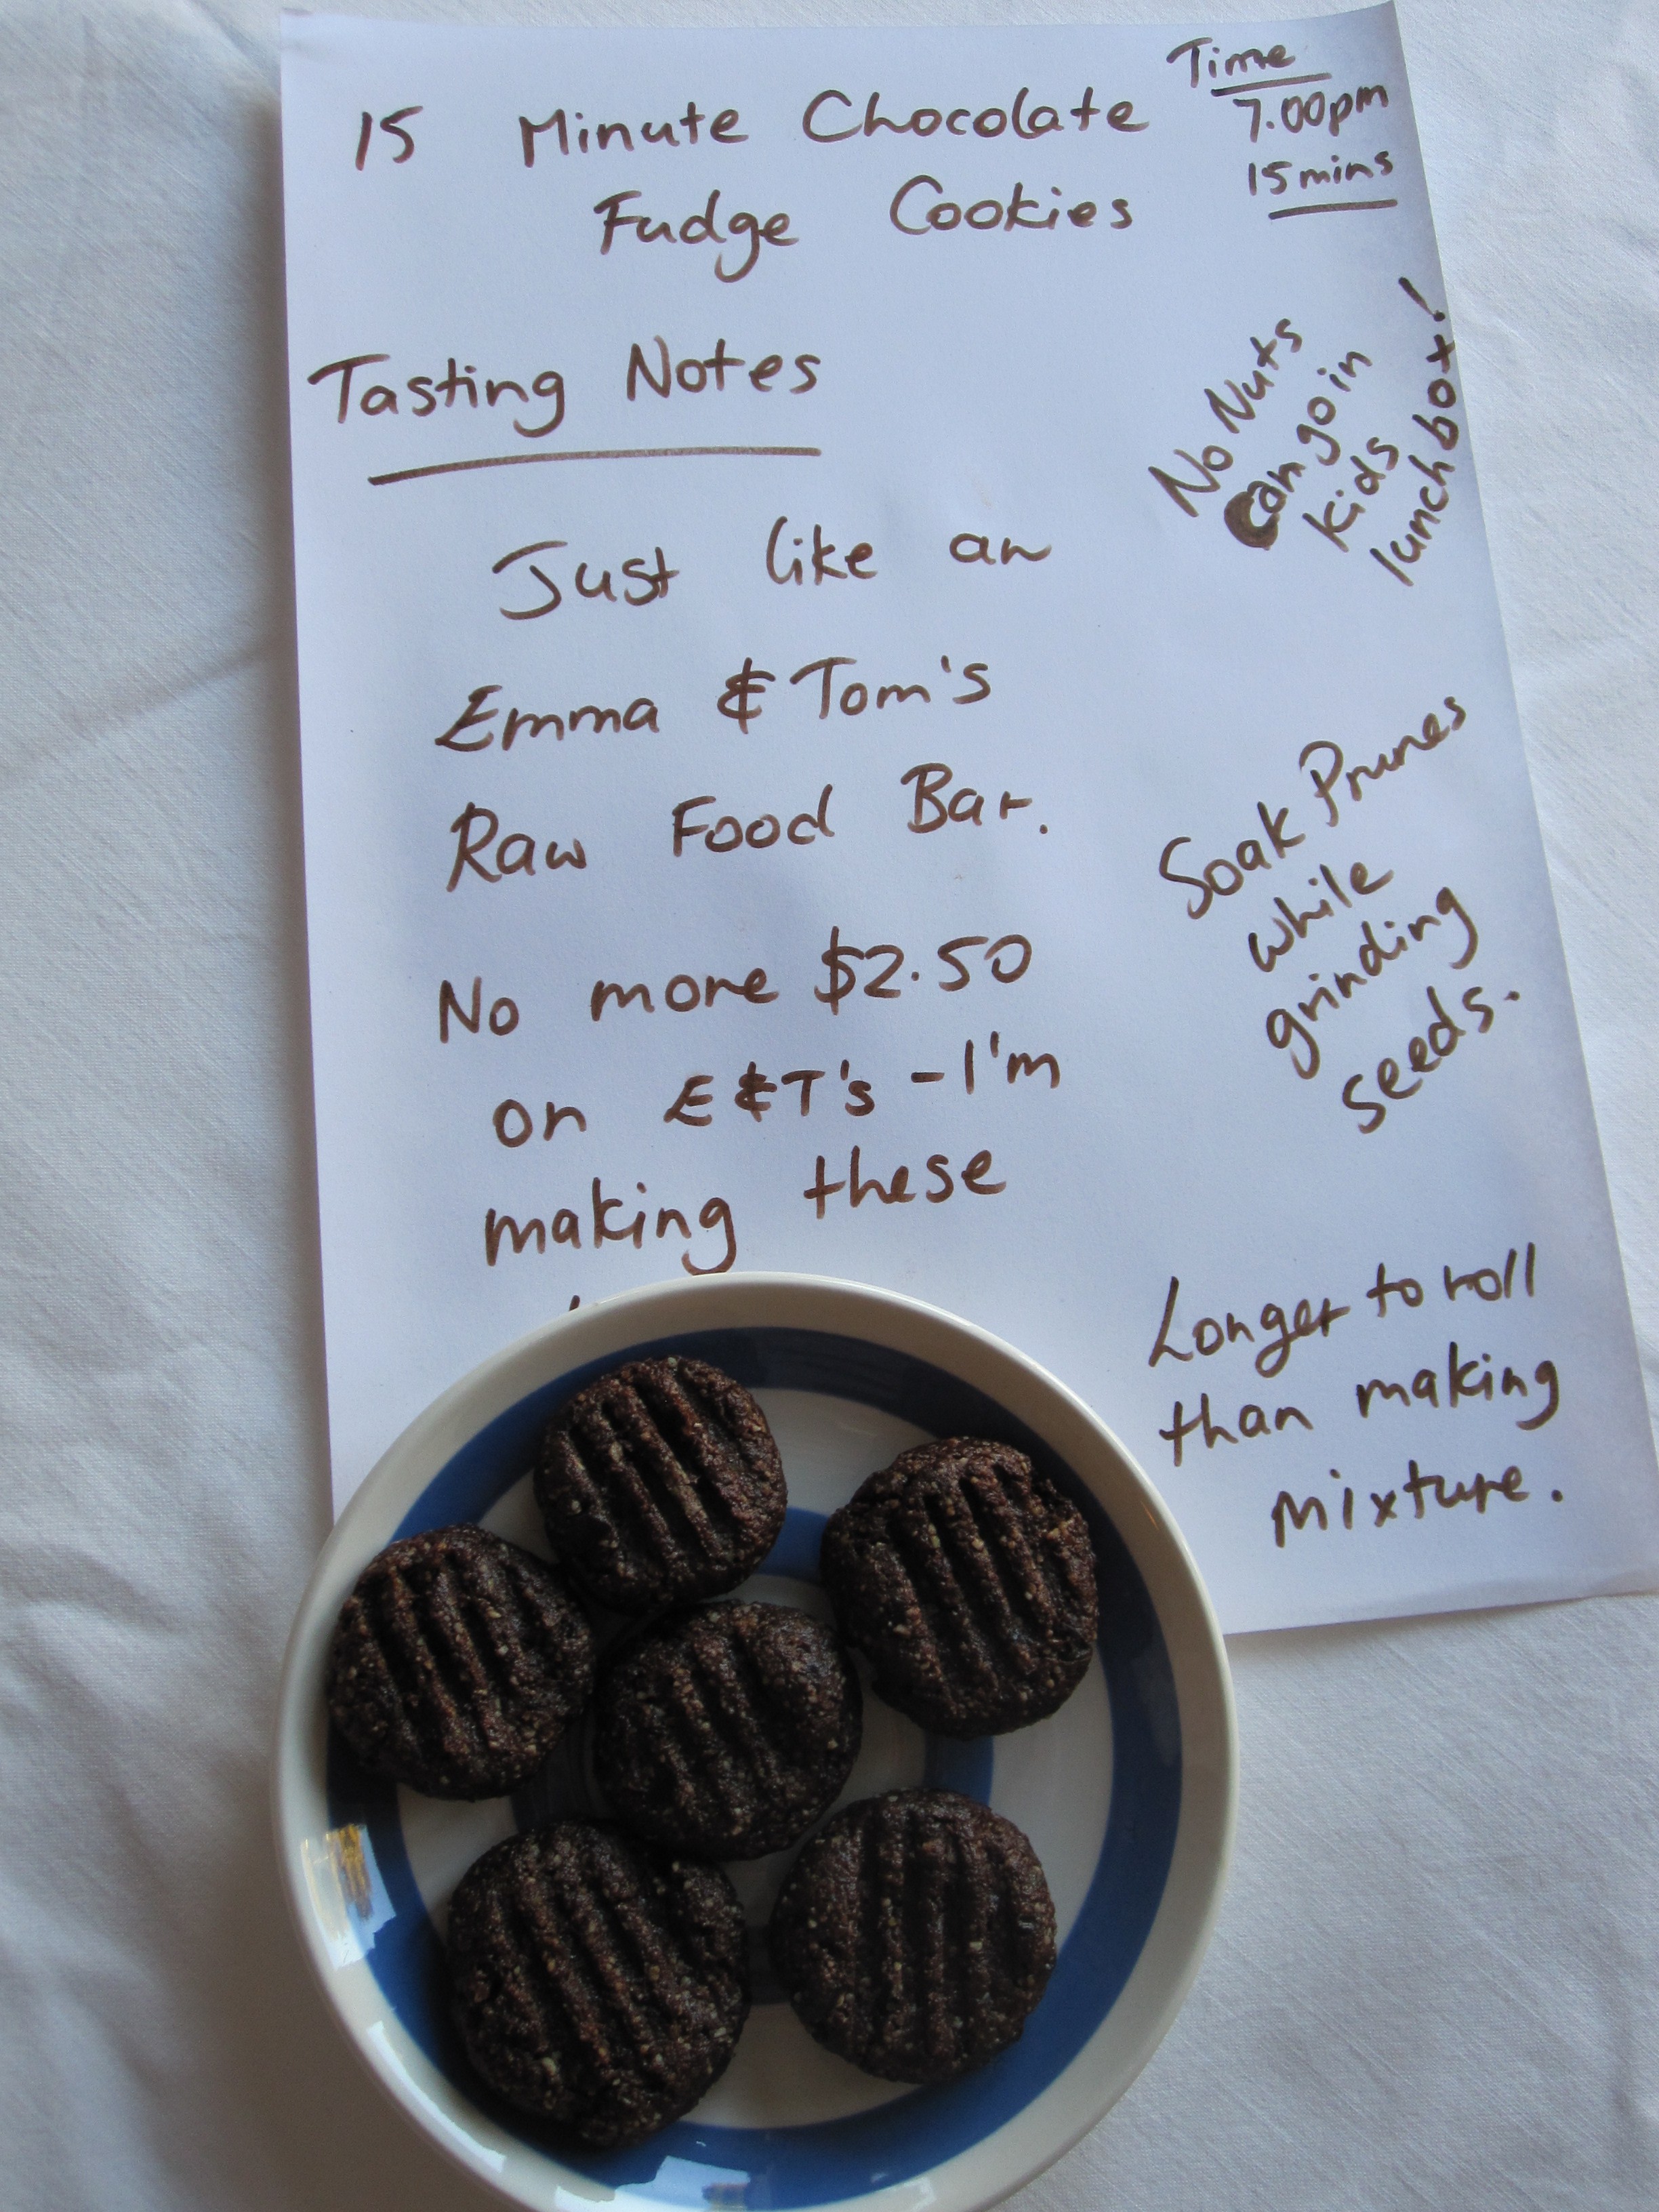 15 Minute Chocolate
Fudge Cookies
Time
7.00pm
15 mins
Tasting Notes
Just like an
Emma & Tom's
Raw Food Bar.
No more $2.50
on E&T's - I'm
making these
No Nuts
Can go in
kids
lunch box!
Soak Prunes
while
grinding
seeds.
Longer to roll
than making
mixture.